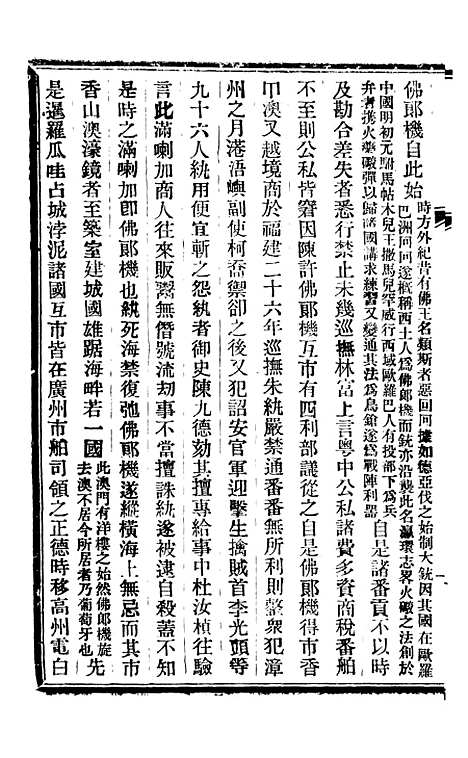 佛郞機自此始
時方外紀昔有佛王名類斯者惡回回據如德亞伐之始制大銃因其國在歐羅
巴洲回回遂槪稱西土人爲佛郞機而銃亦沿襲此名瀛環志畧火礮之法創於
中國明初元駙馬帖木兒王撒馬兒罕威行西域歐羅巴人有投部下爲兵
弁者携火藥礮彈以歸諸國講求練習又變通其法爲鳥鎗遂爲戰陣利器
自是諸番貢不以時
及勘合差失者悉行禁止未幾巡撫林富上言粤中公私諸費多資商稅番舶
不至則公私皆窘因陳許佛郞機互市有四利部議從之自是佛郞機得市香
山澳又越境商於福建二十六年巡撫朱紈嚴禁通番番無所利則整衆犯漳
州之月港浯嶼副使柯喬禦卻之後又犯詔安官軍迎擊生擒賊首李光頭等
九十六人紈用便宜斬之怨紈者御史陳九德劾其擅專給事中杜汝楨往驗
言此滿喇加商人往來販鬻無僭號流劫事不當擅誅紈遂被逮自殺蓋不知
是時之滿喇加卽佛郞機也紈死海禁復弛佛郞機遂縱橫海上無忌而其市
香山澳濠鏡者至築室建城國雄踞海畔若一國
此澳門有洋樓之始然佛郞機旋
去澳不居今所居者乃葡萄牙也
先
是暹羅瓜哇占城浡泥諸國互市皆在廣州市舶司領之正德時移高州電白